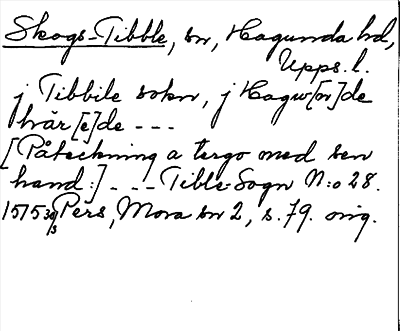 Skogs-Tibble, sn, Hagunda hd,
Upps. l.
j Tibbile sokn, j Hagw[on]de
hår[e]de ---
[Påteckning a tergo med sen
hand:] --- Tible Sogn N:o 28.
1575 30/3 Pers, Mora sn 2, s. 79. orig.